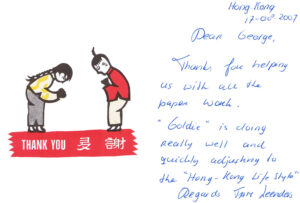 Hong Kong
17-Oct-2007
Dear George,
Thanks for helping
us with all the
paper work.
"Goldie" is doing
really well and
quickly adjusting to
the "Hong-Kong life style"
Regards Leenders
THANK YOU 多 謝